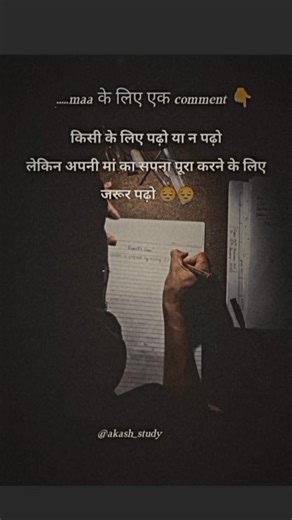 .....maa के लिए एक comment 👇
किसी के लिए पढ़ो या न पढ़ो
लेकिन अपनी मां का सपना पूरा करने के लिए
जरूर पढ़ो 😔😔
@akash_study